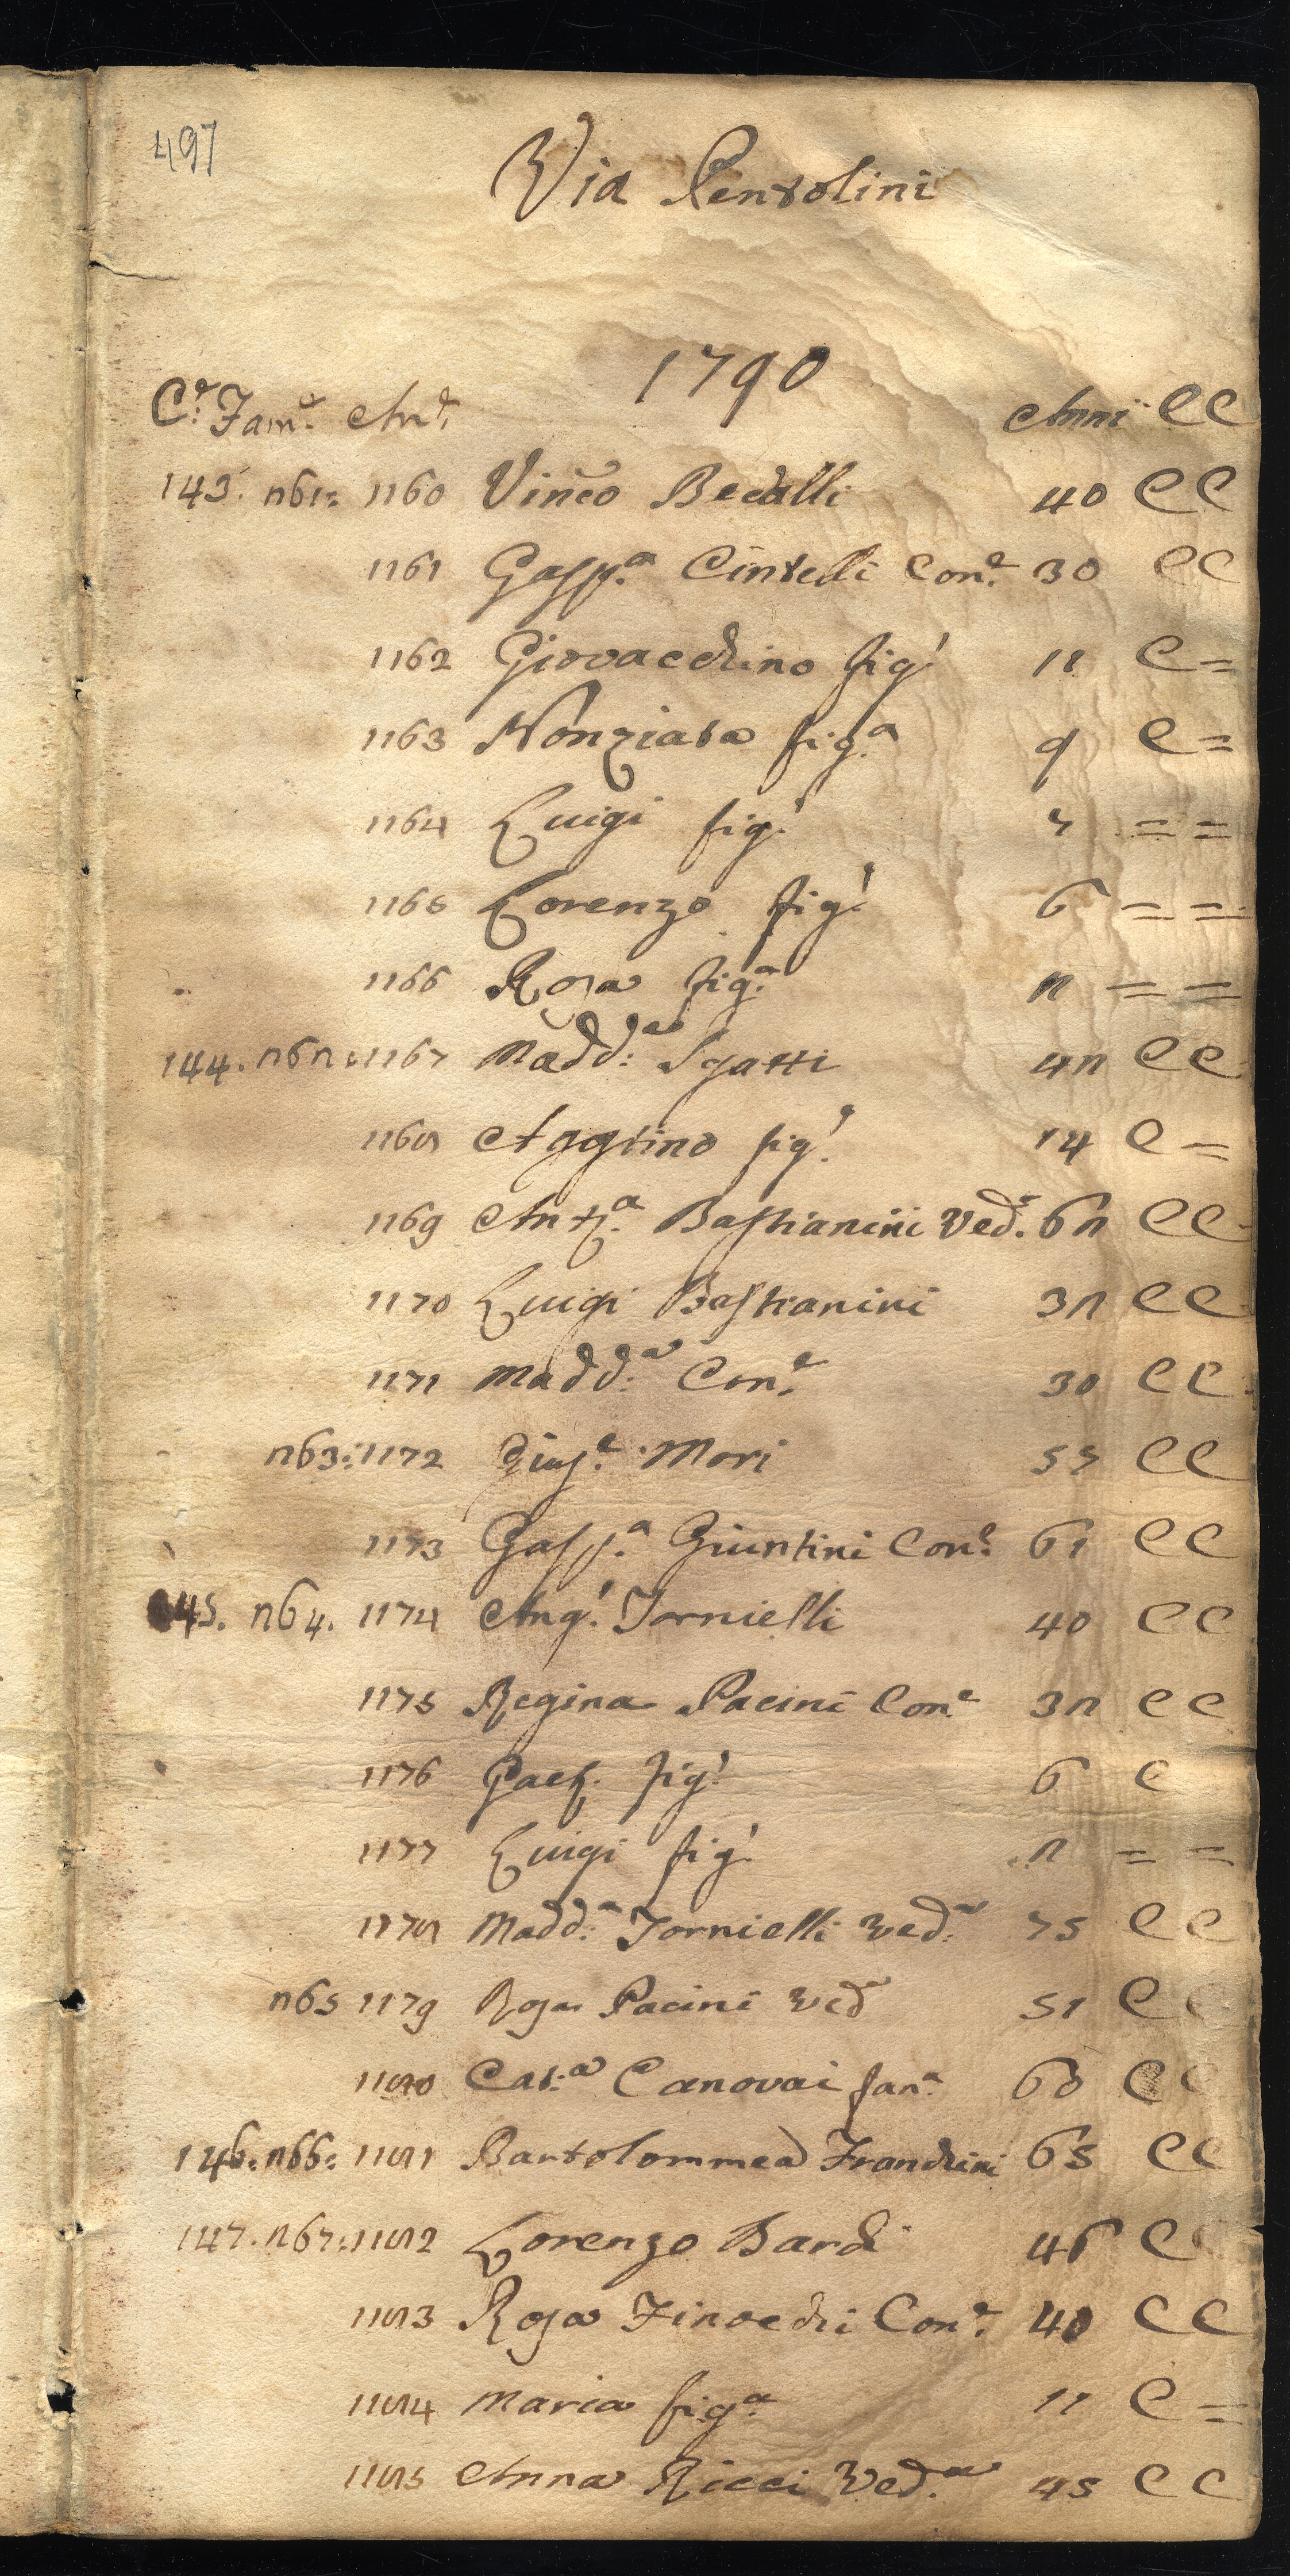 497
Via Pentolini
1790
C.e Fam.e An.e Anni CC
143. 261: 1160 Vinco Becalli 40 CC
1161 Gasp.a Cintelli Con.e 30 CC
1162 Giovacchino fig.l 11 C=
1163 Nonziata fig.a 9 C=
1164 Luigi fig.l 7 = =
1165 Lorenzo fig.l 6 = =
1166 Rosa fig.a 2 = =
144. 262: 1167 Madd:a Sgatti 42 CC
1168 Agstino fig.l 14 C=
1169 Ant.a Bastianini Ved.a 62 CC
1170 Luigi Bastianini 32 CC
1171 Madd:a Con.e 30 CC
263: 1172 Gius.e Mori 57 CC
1173 Gasp.a Giuntini Con.e 61 CC
145. 264. 1174 Ang.l Tornielli 40 CC
1175 Regina Pacini Con.e 32 CC
1176 Gaet. fig.l 6 C
1177 Luigi fig.l 2 = =
1178 Madd:a Tornielli Ved.a 75 CC
265 1179 Rosa Pacini Ved.a 51 CC
1180 Cat:a Canovai fan.a 60 CC
146. 266: 1181 Bartolommeo Franchini 65 CC
147. 267: 1182 Lorenzo Bardi 46 CC
1183 Rosa Finocchi Con.e 40 CC
1184 Maria fig.a 11 C=
1185 Anna Ricci Ved.a 45 CC